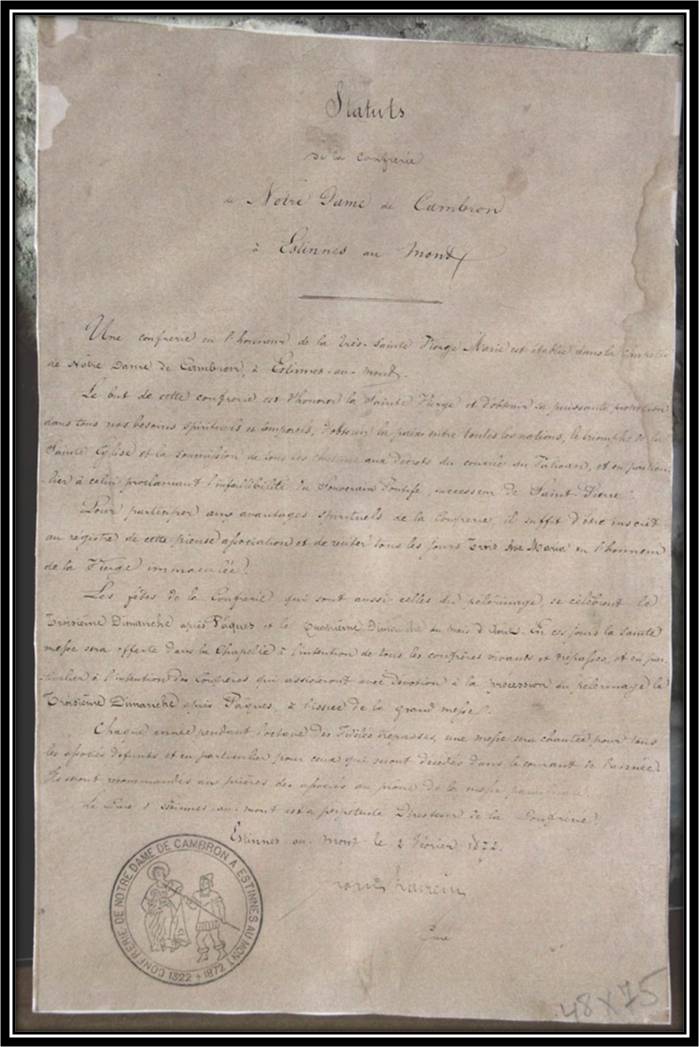 Statuts
de la Confrerie
de Notre Dame de Cambron
à Estinnes au Mont
Une confrerie en l'honneur de la très-Sainte Vierge Marie est établie dans la Chapelle
de Notre Dame de Cambron, à Estinnes-au-Mont.
Le but de cette confrerie est d'honorer la Sainte Vierge et d'obtenir sa puissante protection
dans tous nos besoins spirituels et temporels, d'obtenir la paix entre toutes les nations, le triomphe de la
Sainte Eglise et la soumission de tous les aux décrets du concile du Vatican, et en particu-
lier à celui proclamant l'infaillibilité du Souverain Pontife, successeur de Saint Pierre.
Pour participer aux avantages spirituels de la Confrerie, il suffit d'être inscrit
au registre de cette pieuse association et de reciter tous les jours trois Ave Maria en l'honneur
de la Vierge immaculée.
Les fêtes de la Confrerie qui sont aussi celles du pélerinage, se célèbrent le
Troisième Dimanche après Pâques et le Quatrième Dimanche du mois d'Août. En ces jours la sainte
messe sera offerte dans la Chapelle à l'intention de tous les confrères vivants et trépassés, et en par-
ticulier à l'intention des Confrères qui assisteront avec dévotion à la procession du pélerinage le
Troisième Dimanche après Pâques, à l'issue de la grand messe.
Chaque année pendant l'octave des Fidèles trépassés, une messe sera chantée pour tous
les associés défunts et en particulier pour ceux qui seront décédés dans le courant de l'année.
Ils seront recommandés aux prières des associés au prône de la messe paroissiale.
Le Curé d'Estinnes-au-Mont est à perpetuité Directeur de la Confrerie.
Estinnes-au-Mont le 2 Février 1872.
Curé
CONFRERIE DE NOTRE DAME DE CAMBRON A ESTINNES AU MONT
1322 + 1872
48 X 75